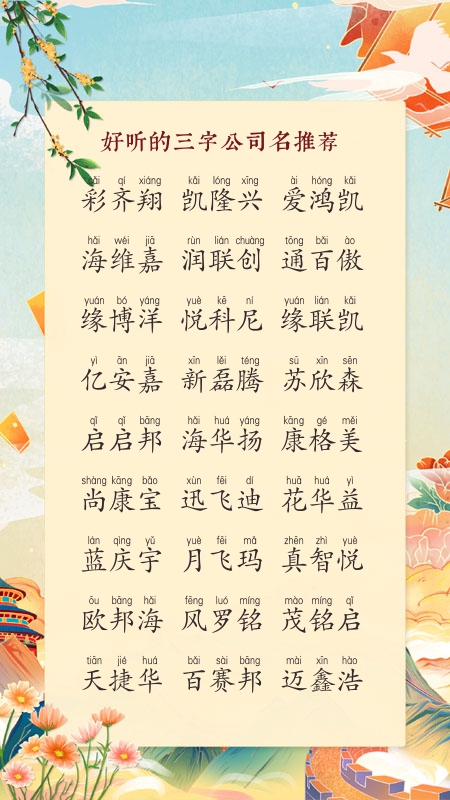 好听的三字公司名推荐
cǎi qí xiáng kǎi lóng xīng ài hóng kǎi
彩齐翔 凯隆兴 爱鸿凯
hǎi wéi jiā rùn lián chuàng tōng bǎi ào
海维嘉 润联创 通百傲
yuán bó yáng yuè kē ní yuán lián kǎi
缘博洋 悦科尼 缘联凯
yì ān jiā xīn lěi téng sū xīn sēn
亿安嘉 新磊腾 苏欣森
qǐ qǐ bāng hǎi huá yáng kāng gé měi
启启邦 海华扬 康格美
shàng kāng bǎo xùn fēi dí huā huá yì
尚康宝 迅飞迪 花华益
lán qìng yǔ yuè fēi mǎ zhēn zhì yuè
蓝庆宇 月飞玛 真智悦
ōu bāng hǎi fēng luó míng mào míng qǐ
欧邦海 风罗铭 茂铭启
tiān jié huá bǎi sài bāng mài xīn hào
天捷华 百赛邦 迈鑫浩